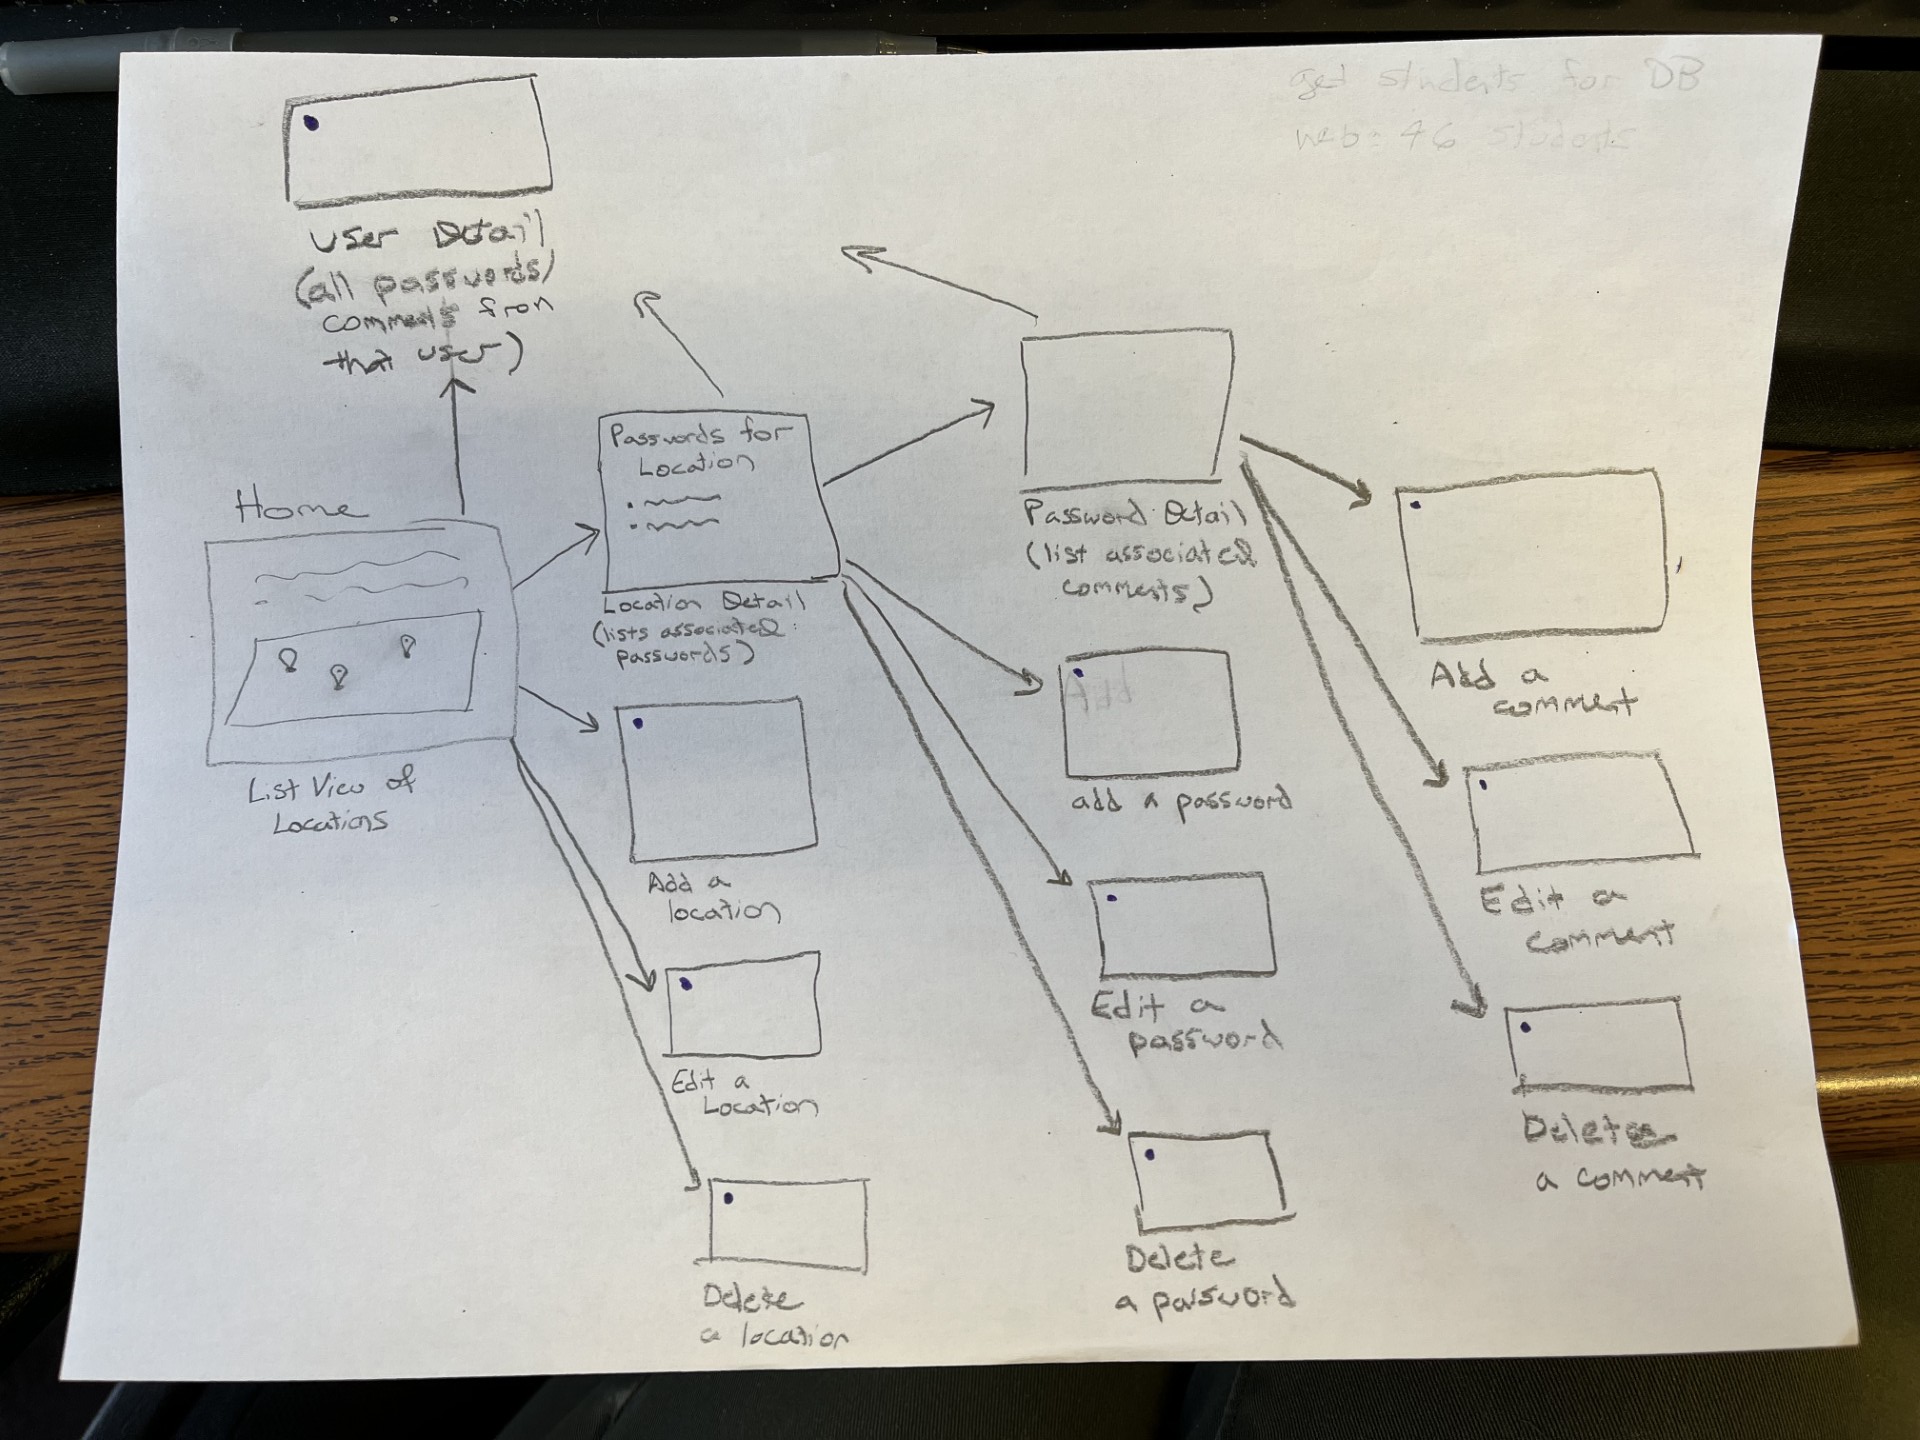 get students for DB
web: 46 students
User Detail
(all passwords/
comments from
that user)
Home
List View of
Locations
Passwords for
Location
Location Detail
(lists associated
passwords)
Add a
location
Edit a
Location
Delete
a location
Password Detail
(list associated
comments)
Add
add a password
Edit a
password
Delete
a password
Add a
comment
Edit a
comment
Delete
a comment